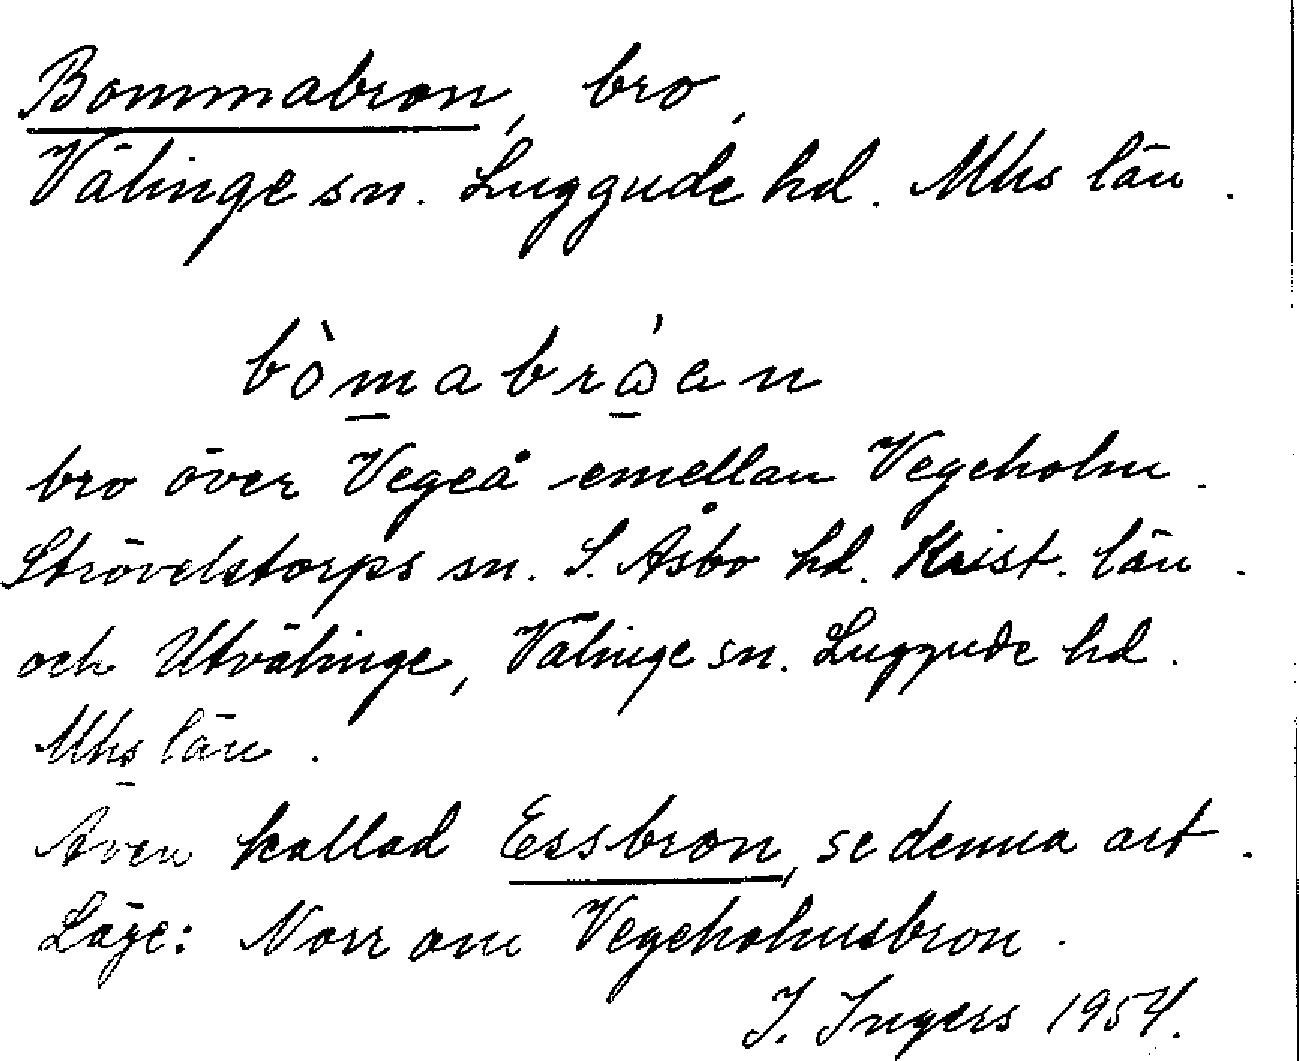 Bommabron, bro,
Välinge sn. Luggude hd. Mhs län.
bòmabråen
bro över Vegeå emellan Vegeholm.
Strövelstorps sn. S. Åsbo hd. Krist. län.
och Utvälinge, Välinge sn. Luggude hd.
Mhs län.
Även kallad Essbron, se denna art.
Läge: Norr om Vegeholmsbron.
I. Ingers 1954.